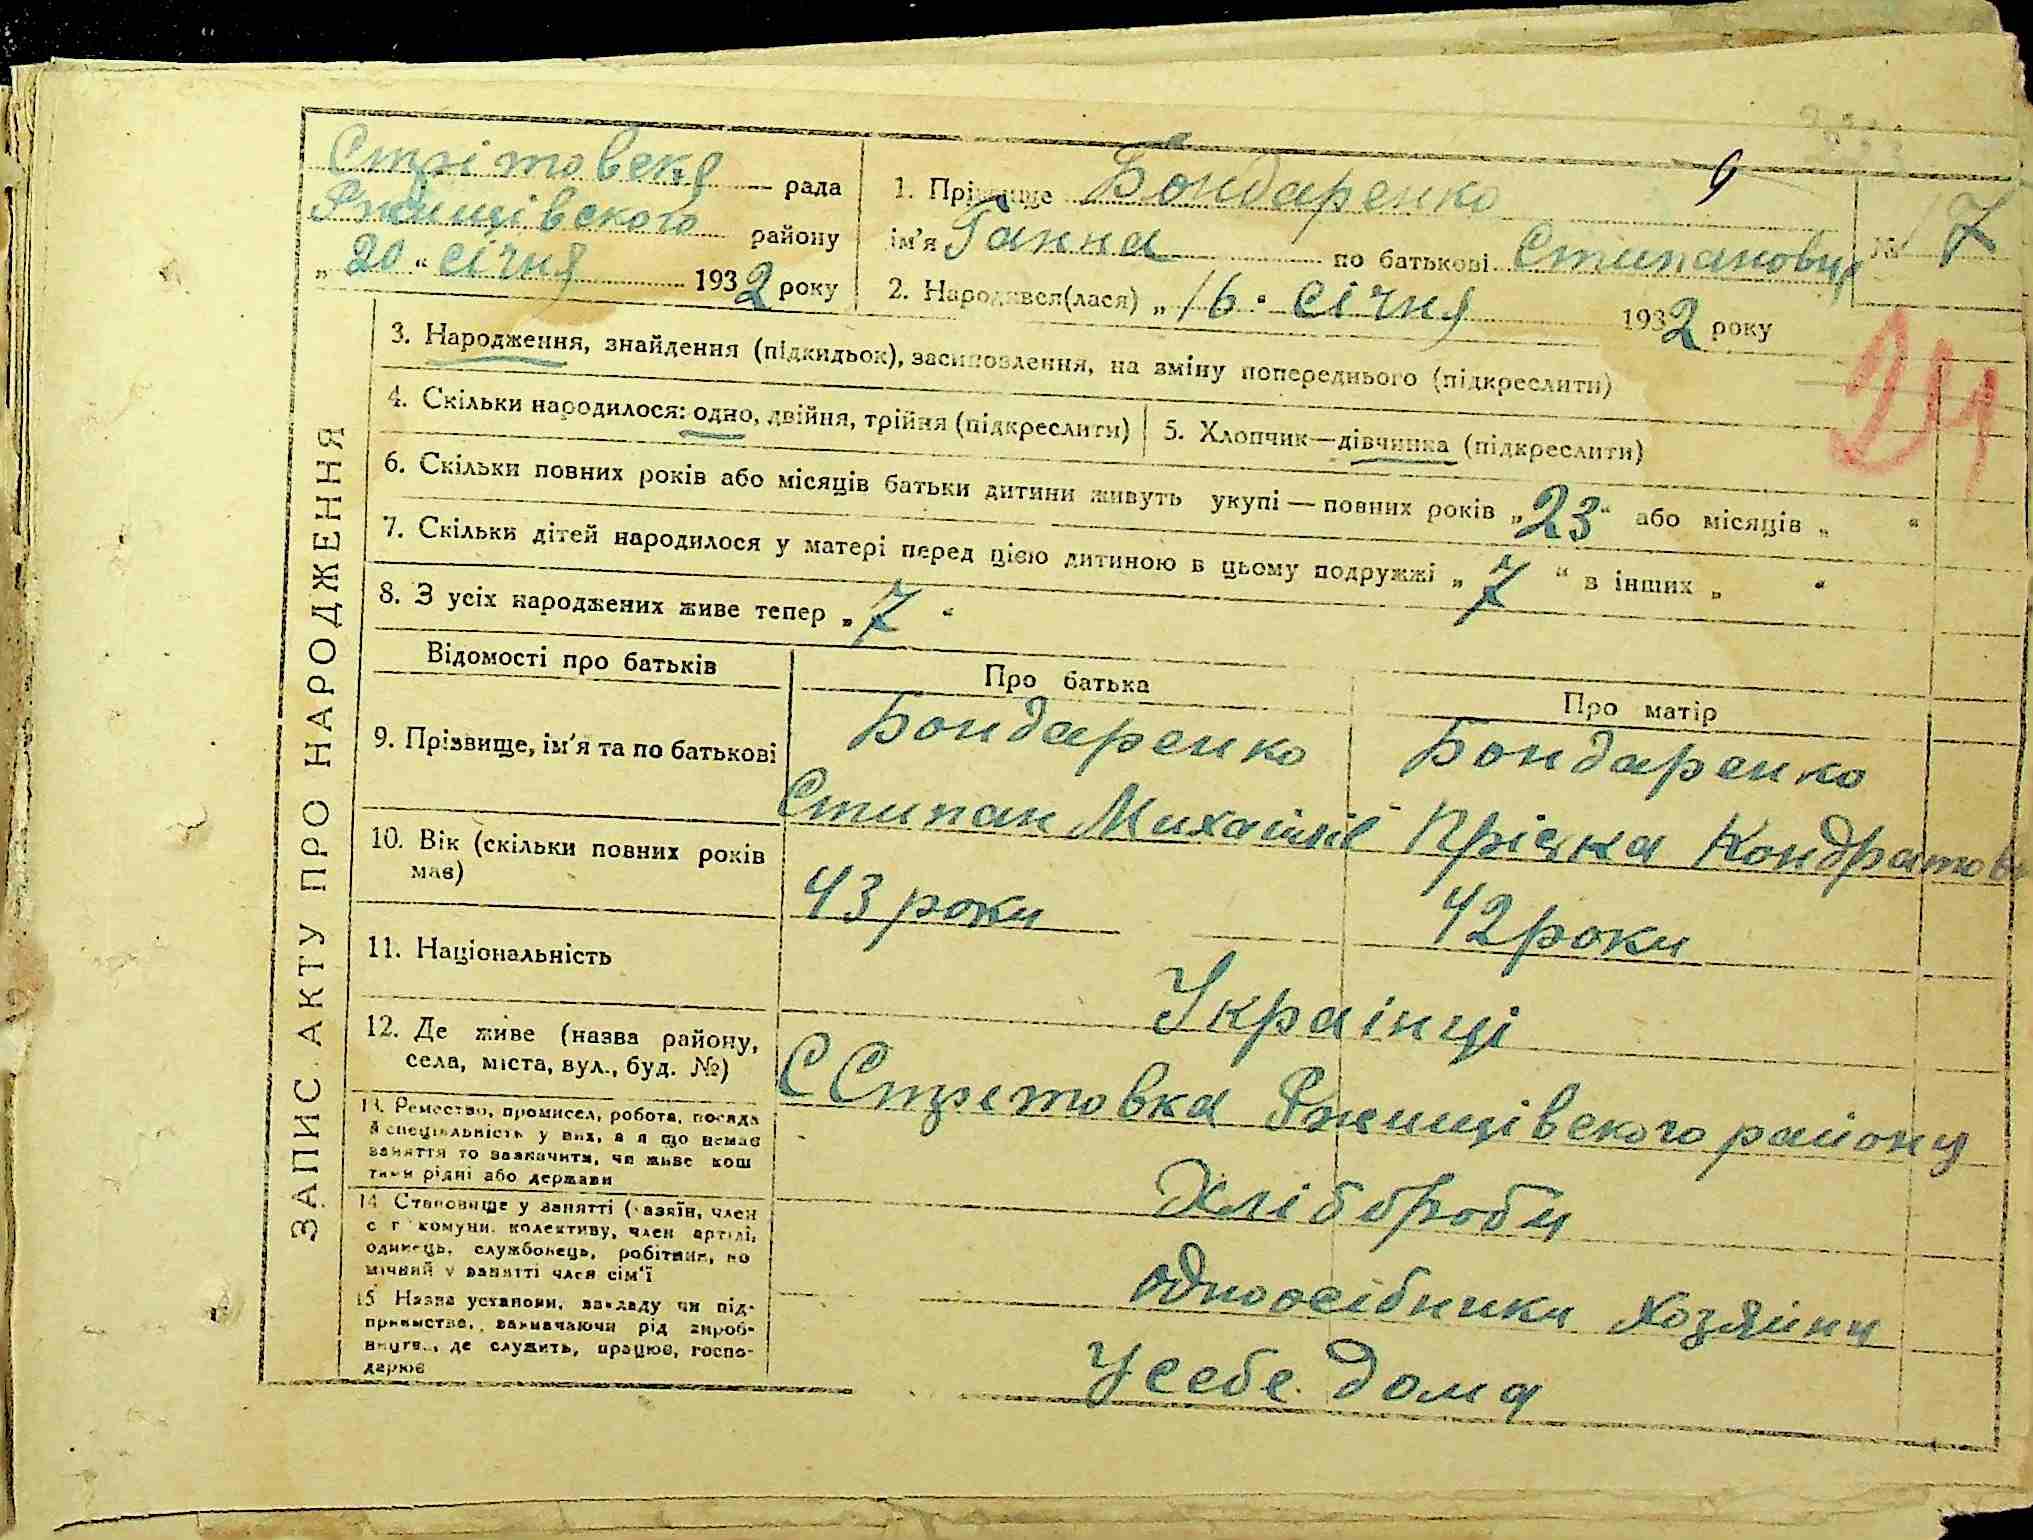 ЗАПИС АКТУ ПРО НАРОДЖЕННЯ
Стрітовска рада
Ржищівского району
„20“ січня 1932 року
1. Прізвище Бондаренко
ім'я Ганна по батькові Стипановна
2. Народився(лася) „16“ січня 1932 року
№ 7
24
3. Народження, знайдення (підкидьок), засиновлення, на зміну попереднього (підкреслити)
4. Скільки народилося: одно, двійня, трійня (підкреслити)
5. Хлопчик—дівчинка (підкреслити)
6. Скільки повних років або місяців батьки дитини живуть укупі — повних років „23“ або місяців „ “
7. Скільки дітей народилося у матері перед цією дитиною в цьому подружжі „7“ в інших „ “
8. З усіх народжених живе тепер „7“
Відомості про батьків
Про батька
Про матір
9. Прізвище, ім'я та по батькові
Бондаренко
Стипан Михайлів
Бондаренко
Пріська Кондратов
10. Вік (скільки повних років має)
43 роки
42 роки
11. Національність
Украінці
12. Де живе (назва району,
села, міста, вул., буд. №)
С Стретовка Ржищівского району
13. Ремество, промисел, робота, посада
й спеціяльність у них, а я що немає
заняття то зазначити, чи живе кош
тами рідні або держави
Хлібороби
14. Становище у занятті (хазяїн, член
с г комуни, колективу, член артілі,
одинець, службовець, робітник, по
мічний у занятті член сім'ї
одноосібники хозяіни
15 Назва установи, закладу чи під-
приємства, зазначаючи рід вироб-
ництв., де служить, працює, госпо-
дарює
У себе дома